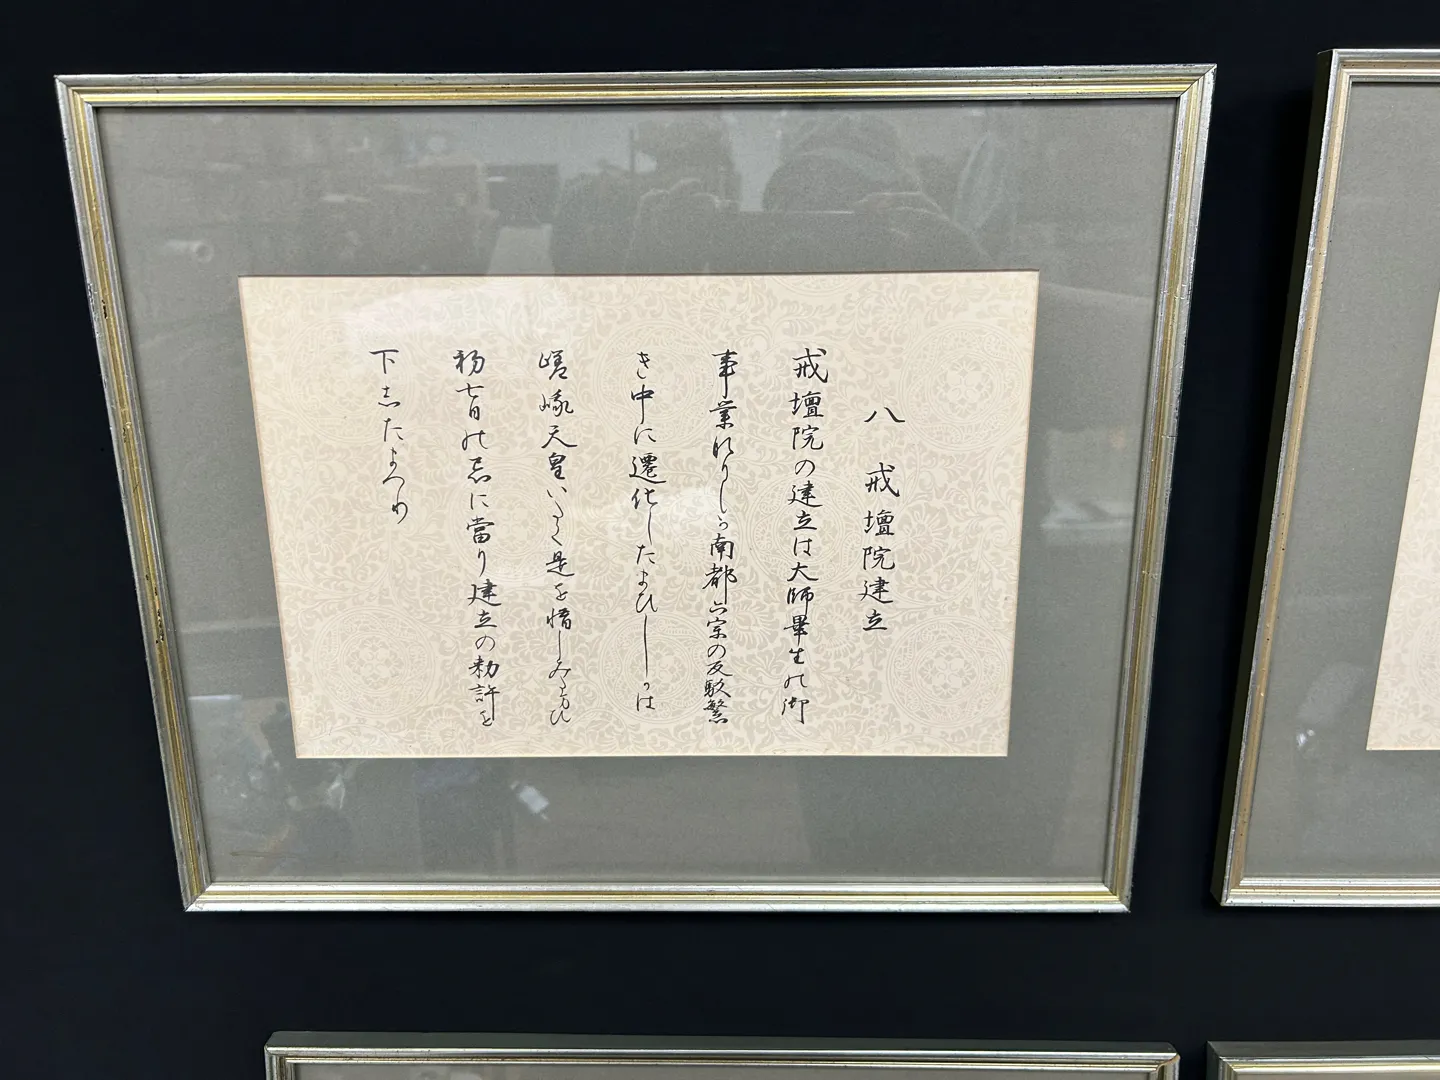 八 戒壇院建立
戒壇院の建立は大師畢生の御
事業なりしが南都六宗の反駁繁
き中に遷化したまひしかば
嵯峨天皇いたく是を惜しみたまひ
初七日の忌に當り建立の勅許を
下したまへり